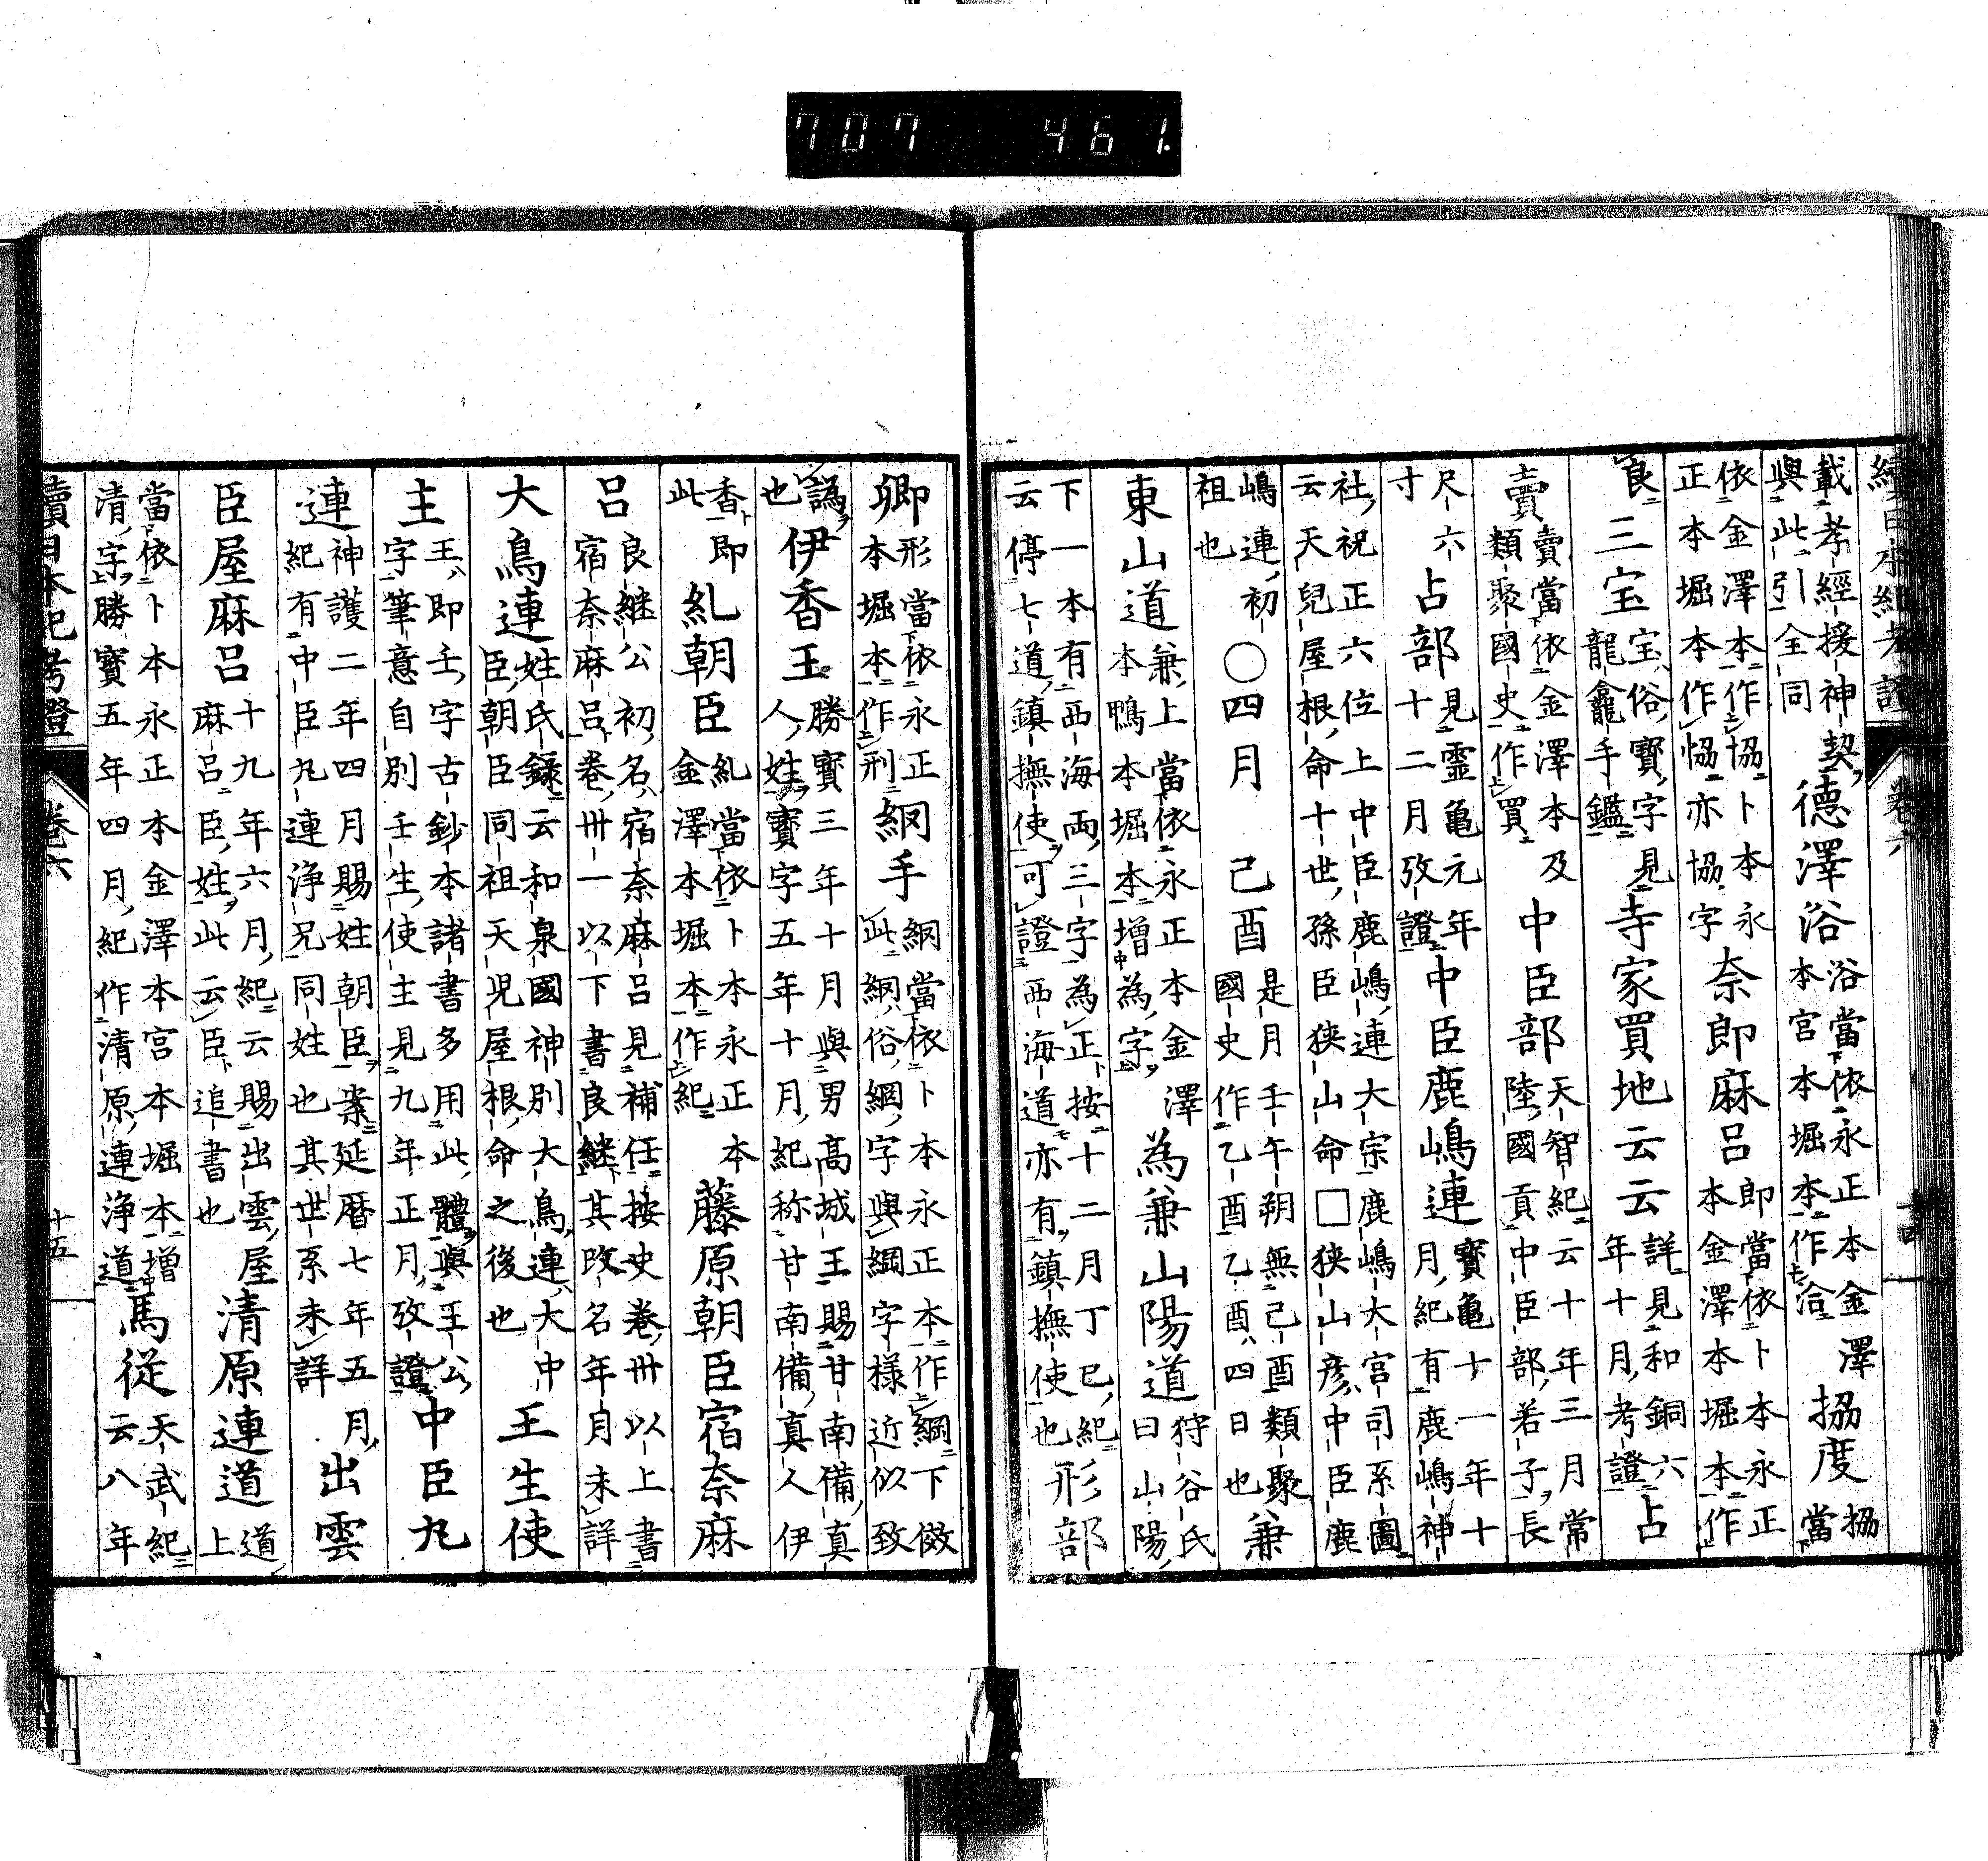 續日本紀考證 卷六 十四
載孝經援神契與此引全同 德澤浴 浴當依永正本金澤本宮本堀本作洽 協度 協當
依金澤本作協卜本永正本堀本作恊亦協字 奈郎麻呂 郎當依卜本永正本金澤本堀本作
良 三宝 宝俗寶字見龍龕手鑑 寺家買地云云 詳見和銅六年十月考證 占
賣 賣當依金澤本及類聚國史作買 中臣部 天智紀云十年三月常陸國貢中臣部若子長
尺六寸 占部 見靈亀元年十二月攷證 中臣鹿嶋連 寶亀十一年十月紀有鹿嶋神
社祝正六位上中臣鹿嶋連大宗鹿嶋大宮司系圖云天兒屋根命十世孫臣狭山命□狭山彦中臣鹿
嶋連初祖也 ○四月 己酉 是月壬午朔無己酉類聚國史作乙酉乙酉四日也 兼
東山道 兼上當依永正本金澤本鴨本堀本增為字 為兼山陽道 狩谷氏曰山陽
下一本有西海兩三字為正按十二月丁巳紀云停七道鎮撫使可證西海道亦有鎮撫使也 形部
卿 形當依永正本堀本作刑 絅手 絅當依卜本永正本作綱下倣此絅俗綱字與綱字様近似致
譌也 伊香王 勝寳三年十月與男高城王賜甘南備真人姓寳字五年十月紀称甘南備真人伊
香即此 糺朝臣 糺當依卜本永正本金澤本堀本作紀 藤原朝臣宿奈麻
呂 良継公初名宿奈麻呂見補任按史卷卅以上書宿奈麻呂卷卅一以下書良継其改名年月未詳
大鳥連 姓氏録云和泉國神別大鳥連大中臣朝臣同祖天児屋根命之後也 王生使
主 王即壬字古鈔本諸書多用此體與王公字筆意自別壬生使主見九年正月攷證 中臣丸
連 神護二年四月賜姓朝臣案延暦七年五月紀有中臣丸連浄兄同姓也其世系未詳 出雲
臣屋麻呂 十九年六月紀云賜出雲屋麻呂臣姓此云臣追書也 清原連道 道上
當依卜本永正本金澤本宮本堀本增清字勝寳五年四月紀作清原連浄道 馬従 天武紀云八年
續日本紀考證 卷六 十五
707 461.